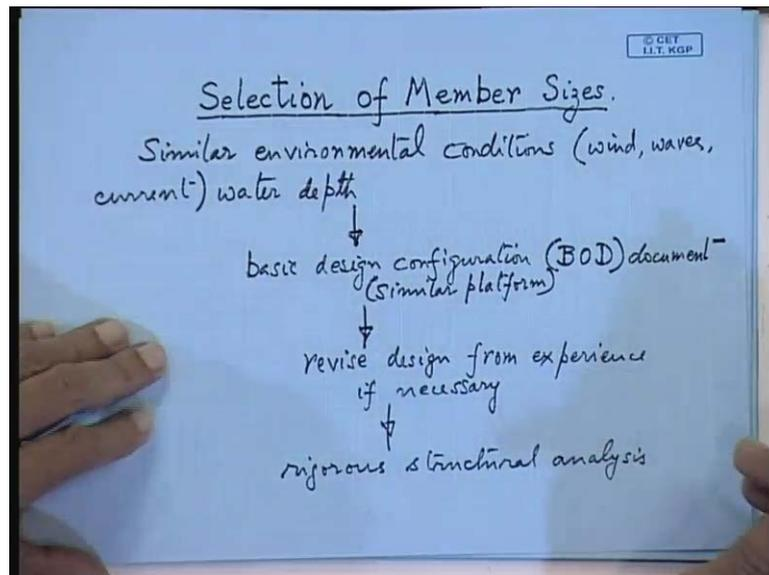 © CET
I.I.T. KGP
Selection of Member Sizes.
Similar environmental conditions (wind, waves,
current) water depth
basic design configuration (BOD) document
(similar platform)
revise design from experience
if necessary
rigorous structural analysis